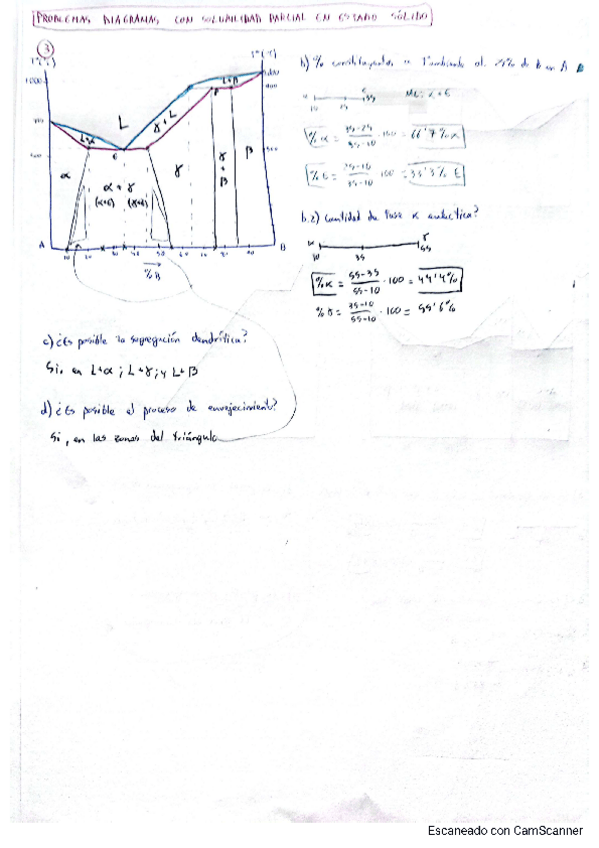 PROBLEMAS DIAGRAMAS CON SOLUBILIDAD PARCIAL EN ESTADO SÓLIDO
3
T°(°C)
T°(°C)
1000
500
L
L+α
γ+L
L+β
α
α + γ
(α+E)
(γ+E)
γ
γ + β
β
E
A
B
10 20 30 40 50 60
% B
b) % constituyentes
25% de B en A
α
E
10
25
35
%α = 35-25 / 35-10 · 100 = 66'7% α
%E = 25-10 / 35-10 · 100 = 33'3% E
b.2) Cantidad de fase α eutéctica?
α
γ
10
35
55
%α = 55-35 / 55-10 · 100 = 44'4%
%γ = 35-10 / 55-10 · 100 = 55'6%
c) ¿Es posible la segregación dendrítica?
Si, en L+α ; L+γ ; y L+β
d) ¿Es posible el proceso de envejecimiento?
Si, en las zonas del triángulo
Escaneado con CamScanner